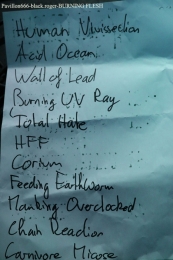 Pavillon666-black.roger-BURNING FLESH
Human Vivisection
Acid Ocean
Wall of Lead
Burning UV Ray
Total Hate
HFF
Corium
Feeding Earthworm
Marking Overclocked
Chain Reaction
Carnivore Micose